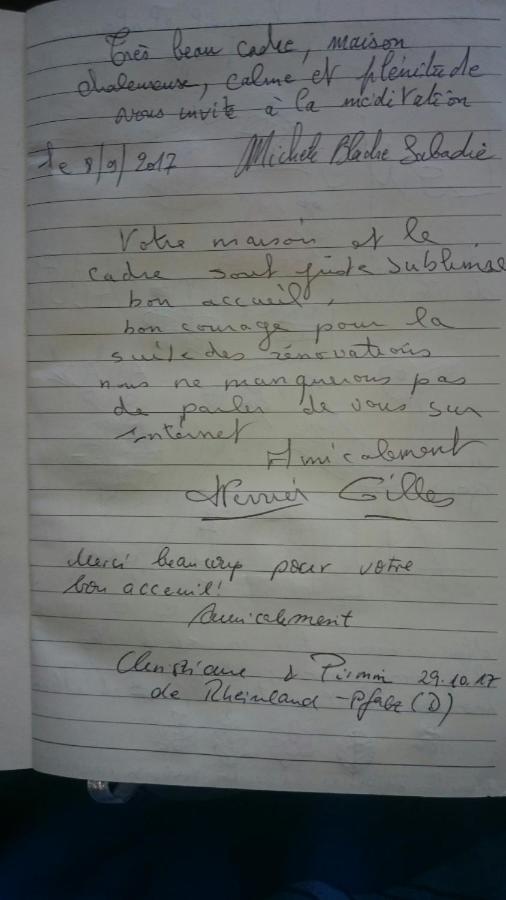 Très beau cadre, maison
chaleureuse, calme et plénitude
vous invite à la méditation
le 8/9/2017 Michele
Votre maison et le
cadre sont juste sublime
bon accueil,
bon courage pour la
suite des rénovations
nous ne manquerons pas
de parler de vous sur
Internet
Amicalement
Gilles
Merci beaucoup pour votre
bon acceuil!
Amicalement
Christiane & Pirmin 29.10.17
de Rheinland-Pfalz (D)